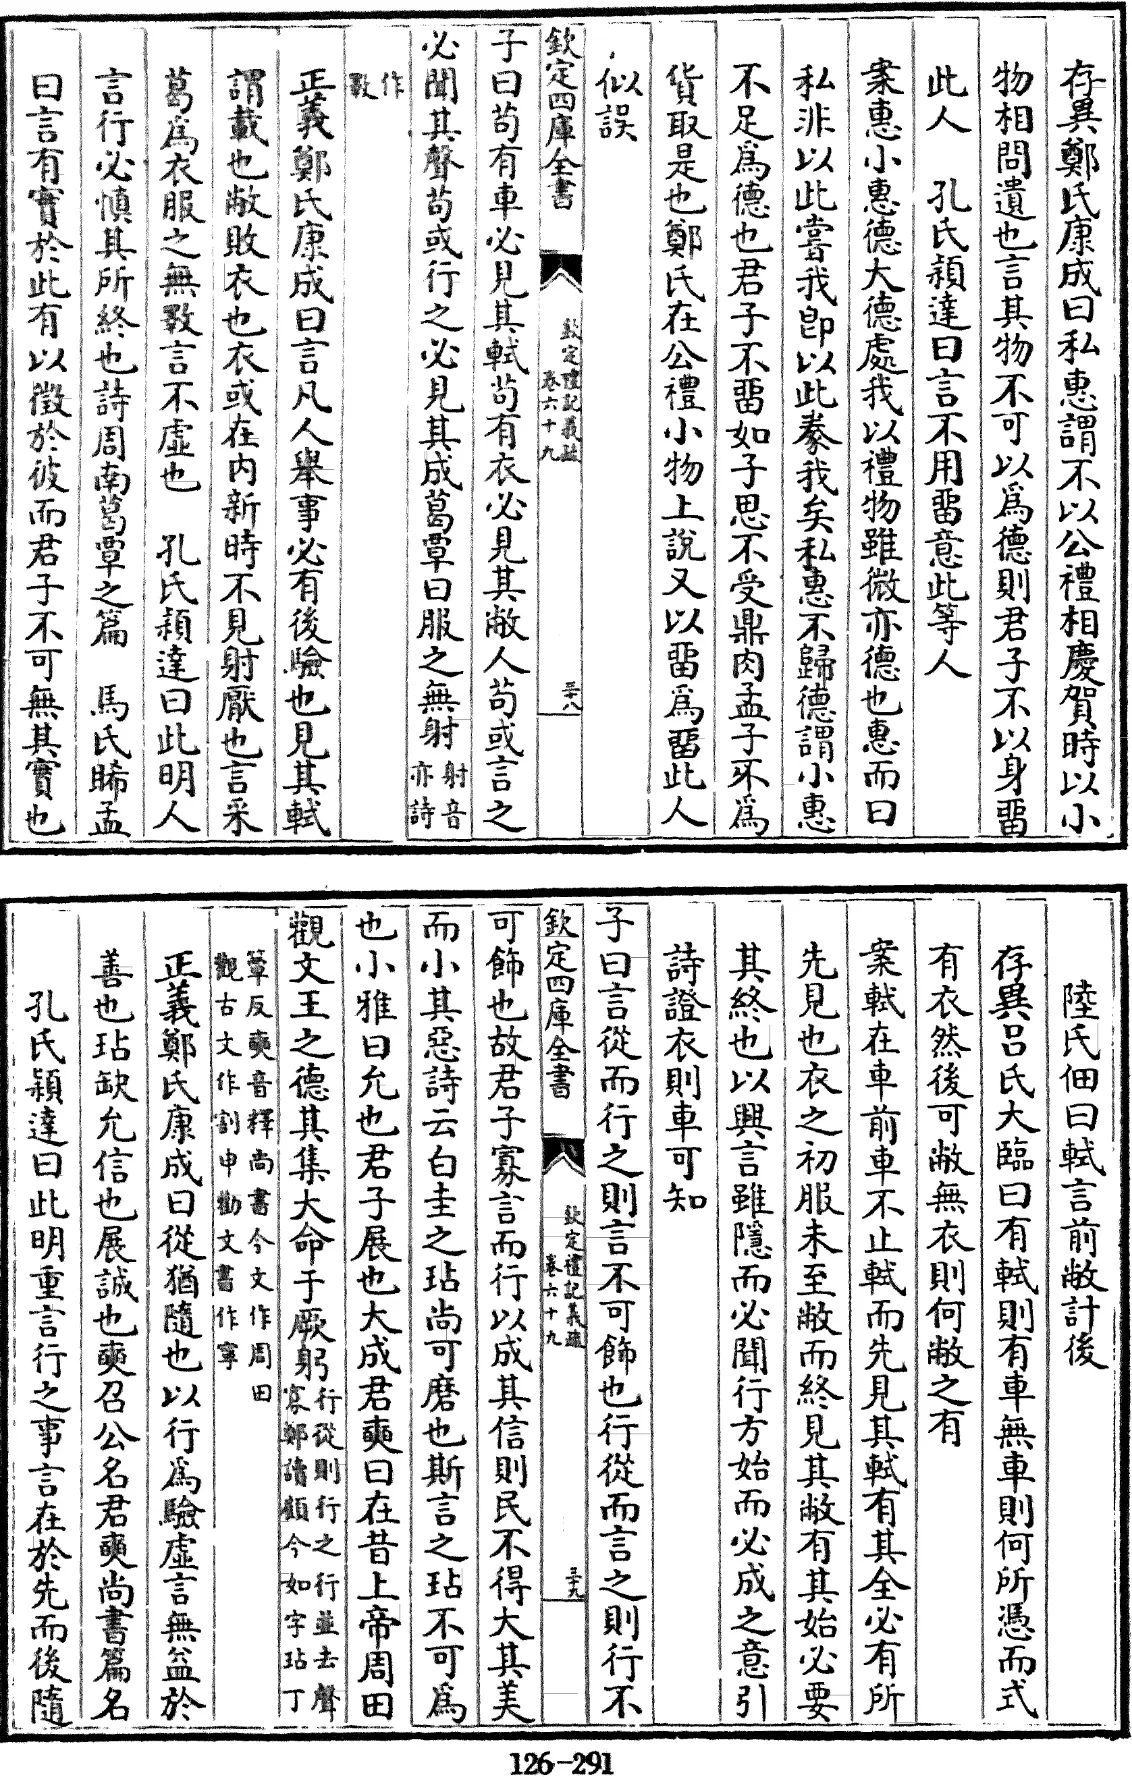 存異鄭氏康成曰私惠謂不以公禮相慶賀時以小
物相問遺也言其物不可以爲德則君子不以身留
此人　孔氏穎達曰言不用留意此等人
案惠小惠德大德處我以禮物雖微亦德也惠而曰
私非以此嘗我卽以此豢我矣私惠不歸德謂小惠
不足爲德也君子不留如子思不受鼎肉孟子不爲
貨取是也鄭氏在公禮小物上說又以留爲留此人
似誤
欽定四庫全書
欽定禮記義疏
卷六十九
三十八
子曰苟有車必見其軾苟有衣必見其敝人苟或言之
必聞其聲苟或行之必見其成葛覃曰服之無射
射音
亦詩
作
斁
正義鄭氏康成曰言凡人舉事必有後驗也見其軾
謂載也敝敗衣也衣或在内新時不見射厭也言采
葛爲衣服之無斁言不虛也　孔氏穎達曰此明人
言行必慎其所終也詩周南葛覃之篇　馬氏晞孟
曰言有實於此有以徵於彼而君子不可無其實也
陸氏佃曰軾言前敝計後
存異呂氏大臨曰有軾則有車無車則何所憑而式
有衣然後可敝無衣則何敝之有
案軾在車前車不止軾而先見其軾有其全必有所
先見也衣之初服未至敝而終見其敝有其始必要
其終也以興言雖隱而必聞行方始而必成之意引
詩證衣則車可知
子曰言從而行之則言不可飾也行從而言之則行不
欽定四庫全書
欽定禮記義疏
卷六十九
三十九
可飾也故君子寡言而行以成其信則民不得大其美
而小其惡詩云白圭之玷尚可磨也斯言之玷不可爲
也小雅曰允也君子展也大成君奭曰在昔上帝周田
觀文王之德其集大命于厥躬
行從則行之行並去聲
寡鄭讀顧今如字玷丁
簟反奭音釋尚書今文作周田
觀古文作割申勸文書作寧
正義鄭氏康成曰從猶隨也以行爲驗虛言無益於
善也玷缺允信也展誠也奭召公名君奭尚書篇名
孔氏穎達曰此明重言行之事言在於先而後隨
126-291